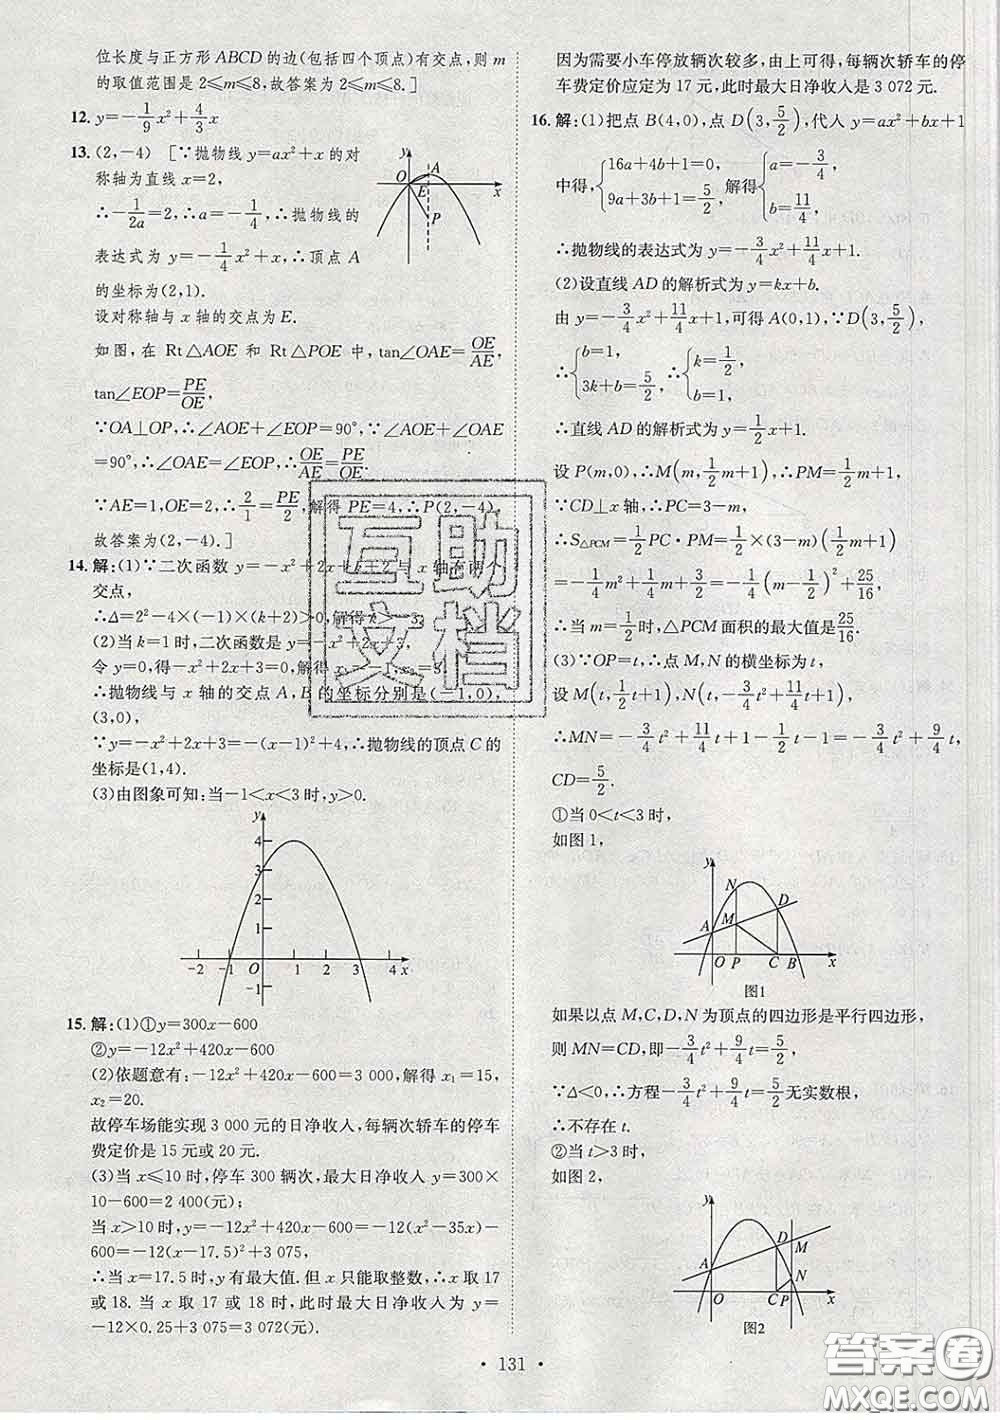 位长度与正方形 ABCD 的边(包括四个顶点)有交点,则 m
的取值范围是 2≤m≤8,故答案为 2≤m≤8.]
12. y=-1/9x²+4/3x
13. (2,-4) [∵抛物线 y=ax²+x 的对
称轴为直线 x=2,
∴-1/2a=2,∴a=-1/4,∴抛物线的
表达式为 y=-1/4x²+x,∴顶点 A
的坐标为(2,1).
设对称轴与 x 轴的交点为 E.
如图,在 Rt△AOE 和 Rt△POE 中,tan∠OAE=OE/AE,
tan∠EOP=PE/OE,
∵OA⊥OP,∴∠AOE+∠EOP=90°,∵∠OAE+∠AOE
=90°,∴∠OAE=∠EOP,∴OE/AE=PE/OE.
∵AE=1,OE=2,∴2/1=PE/2,解得 PE=4,∴P(2,-4),
故答案为(2,-4).]
y
O
A
E
P
x
14. 解:(1)∵二次函数 y=-x²+2x+k+2 与 x 轴有两个
交点,
∴Δ=2²-4×(-1)×(k+2)>0,解得 k>-3.
(2)当 k=1 时,二次函数是 y=-x²+2x+3.
令 y=0,得-x²+2x+3=0,解得 x₁=-1,x₂=3,
∴抛物线与 x 轴的交点 A,B 的坐标分别是(-1,0),
(3,0),
∵y=-x²+2x+3=-(x-1)²+4,∴抛物线的顶点 C 的
坐标是(1,4).
(3)由图象可知:当-1<x<3 时,y>0.
y
4
3
2
1
-2 -1 O 1 2 3 4 x
-1
15. 解:(1)①y=300x-600
②y=-12x²+420x-600
(2)依题意有:-12x²+420x-600=3 000,解得 x₁=15,
x₂=20.
故停车场能实现 3 000 元的日净收入,每辆次轿车的停车
费定价是 15 元或 20 元.
(3)当 x≤10 时,停车 300 辆次,最大日净收入 y=300×
10-600=2 400(元);
当 x>10 时,y=-12x²+420x-600=-12(x²-35x)-
600=-12(x-17.5)²+3 075,
∴当 x=17.5 时,y 有最大值. 但 x 只能取整数,∴x 取 17
或 18. 当 x 取 17 或 18 时,此时最大日净收入为 y=
-12×0.25+3 075=3 072(元).
因为需要小车停放辆次较多,由上可得,每辆次轿车的停
车费定价应定为 17 元,此时最大日净收入是 3 072 元.
16. 解:(1)把点 B(4,0),点 D(3,5/2),代入 y=ax²+bx+1
中得,{16a+4b+1=0, 9a+3b+1=5/2, 解得{a=-3/4, b=11/4,
∴抛物线的表达式为 y=-3/4x²+11/4x+1.
(2)设直线 AD 的解析式为 y=kx+b.
由 y=-3/4x²+11/4x+1,可得 A(0,1),∵D(3,5/2),
∴{b=1, 3k+b=5/2, ∴{k=1/2, b=1,
∴直线 AD 的解析式为 y=1/2x+1.
设 P(m,0),∴M(m,1/2m+1),∴PM=1/2m+1,
∵CD⊥x 轴,∴PC=3-m,
∴S△PCM=1/2PC·PM=1/2×(3-m)(1/2m+1)
=-1/4m²+1/4m+3/2=-1/4(m-1/2)²+25/16,
∴当 m=1/2时,△PCM 面积的最大值是25/16.
(3)∵OP=t,∴点 M,N 的横坐标为 t,
设 M(t,1/2t+1),N(t,-3/4t²+11/4t+1),
∴MN=-3/4t²+11/4t+1-1/2t-1=-3/4t²+9/4t,
CD=5/2.
①当 0<t<3 时,
如图 1,
y
N
D
M
A
O P C B x
图1
如果以点 M,C,D,N 为顶点的四边形是平行四边形,
则 MN=CD,即-3/4t²+9/4t=5/2,
∵Δ<0,∴方程-3/4t²+9/4t=5/2无实数根,
∴不存在 t.
②当 t>3 时,
如图 2,
y
D
M
A
N
O C P x
图2
• 131 •
互助
文档
答案圈
MXQE.COM